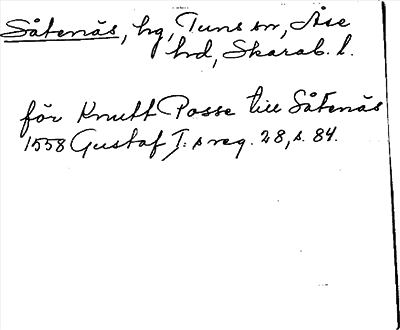 Såtenäs, hg, Tuns sn, Åse
hd, Skarab. l.
för Knutt Posse till Såtenäs
1558 Gustaf I: s reg. 28, s. 84.